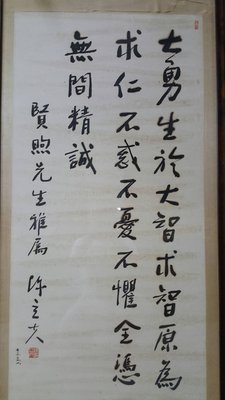 大勇生於大智求智原為
求仁不惑不憂不懼全憑
無間精誠
賢煦先生雅屬 陳立夫